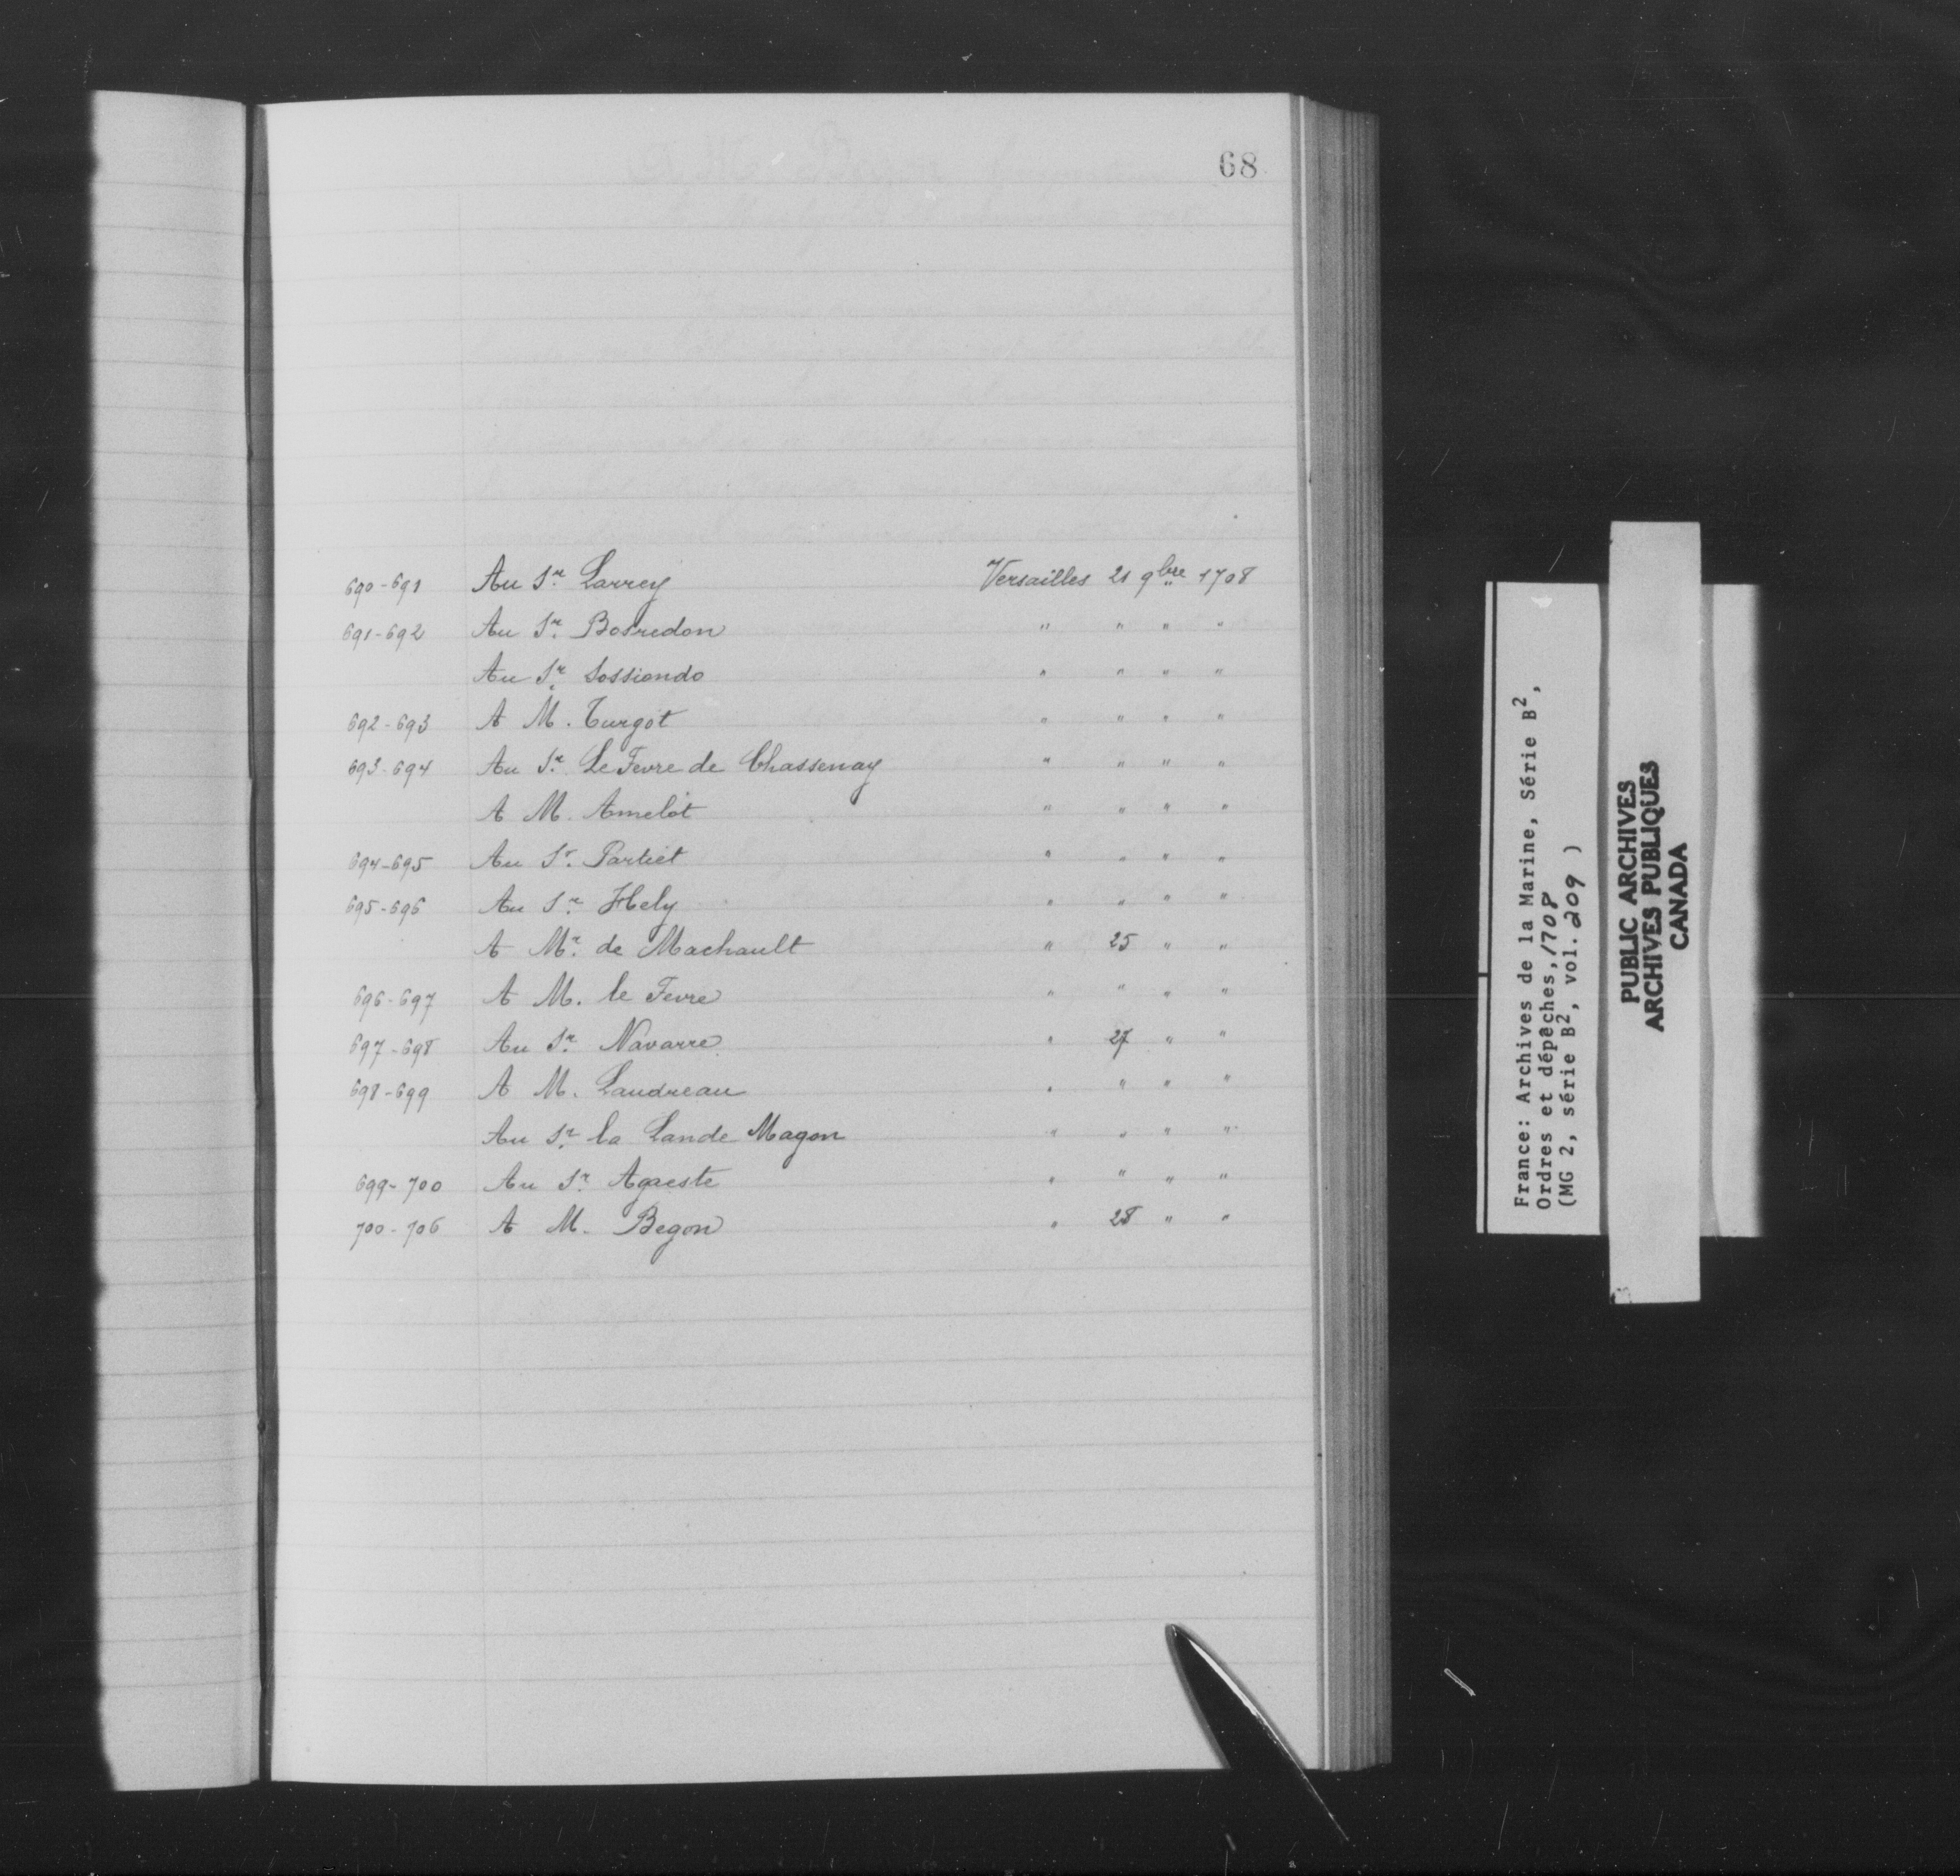 68
690-691 Au Sr. Larrey Versailles 21 9bre 1708
691-692 Au Sr. Bosredon " " " "
Au Sr. Sossiondo " " " "
692-693 A M. Turgot " " " "
693-694 Au Sr. Le Fevre de Chassenay " " " "
A M. Amelot " " " "
694-695 Au Sr. Partiet " " " "
695-696 Au Sr. Hely " " " "
A Mr. de Machault " 25 " "
696-697 A M. le Fevre " " " "
697-698 Au Sr. Navarre " 27 " "
698-699 A M. Landreau " " " "
Au Sr. la Lande Magon " " " "
699-700 Au Sr. Agaeste " " " "
700-706 A M. Begon " 28 " "
France: Archives de la Marine, Série B2,
Ordres et dépêches, 1708
(MG 2, série B2, vol. 209 )
PUBLIC ARCHIVES
ARCHIVES PUBLIQUES
CANADA